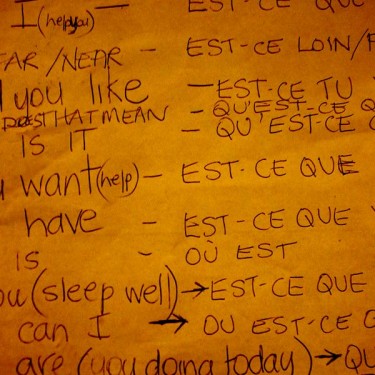 I (help you) — EST-CE QUE
FAR/NEAR — EST-CE LOIN/
you like — EST-CE TU
DOES THAT MEAN — QU'EST-CE Q
IS IT — QU'EST-CE
want (help) — EST-CE QUE
have — EST-CE QUE
is — OÙ EST
(sleep well) → EST-CE QUE
can I → OU EST-CE
are (you doing today) → QU